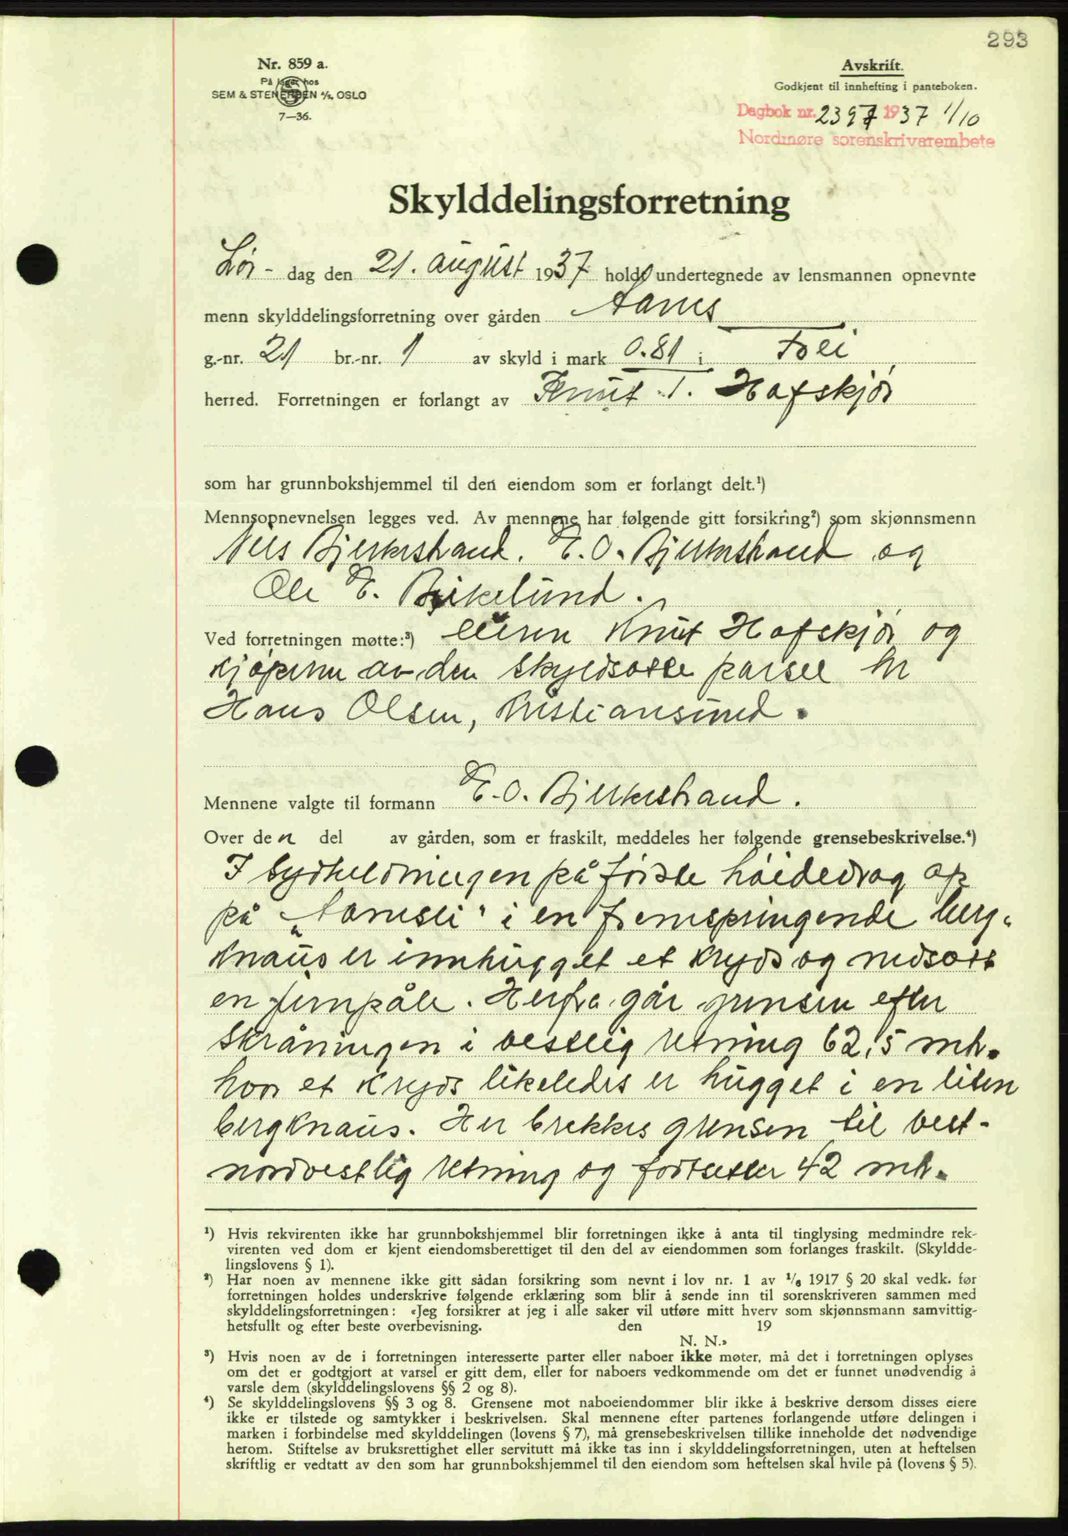 293
Nr. 859 a.
På lager hos
SEM & STENERSEN A/S, OSLO
7—36.
Avskrift.
Godkjent til innhefting i panteboken.
Dagbok nr. 2397 1937 1/10
Nordmøre sorenskriverembete
Skylddelingsforretning
Lør- dag den 21. august 1937 holdt undertegnede av lensmannen opnevnte
menn skylddelingsforretning over gården
g.-nr. 21 br.-nr. 1 av skyld i mark 0.81 i Frei
herred. Forretningen er forlangt av Knut I. Hafskjør
som har grunnbokshjemmel til den eiendom som er forlangt delt.¹)
Mennsopnevnelsen legges ved. Av mennene har følgende gitt forsikring²) som skjønnsmenn
Nils Bjerkestrand. E. O. Bjerkestrand og
Ole E. Birkelund.
Ved forretningen møtte:³) eieren Knut Hafskjør og
kjøperen av den skyldsatte parsel hr
Hans Olsen, Kristiansund.
Mennene valgte til formann E. O. Bjerkestrand.
Over den del av gården, som er fraskilt, meddeles her følgende grensebeskrivelse.⁴)
I sydheldningen på første høidedrag op
på "Aarnesli" i en fremspringende berg-
knaus er innhugget et kryds og nedsatt
en jernpåle. Herfra går grensen efter
skråningen i vestlig retning 62,5 mtr.
hvor et kryds likeledes er hugget i en liten
bergknaus. Her brekkes grensen til vest-
nordvestlig retning og fortsetter 42 mtr.
¹) Hvis rekvirenten ikke har grunnbokshjemmel blir forretningen ikke å anta til tinglysing medmindre rek-
virenten ved dom er kjent eiendomsberettiget til den del av eiendommen som forlanges fraskilt. (Skyldde-
lingslovens § 1).
²) Har noen av mennene ikke gitt sådan forsikring som nevnt i lov nr. 1 av 1/6 1917 § 20 skal vedk. før
forretningen holdes underskrive følgende erklæring som blir å sende inn til sorenskriveren sammen med
skylddelingsforretningen: «Jeg forsikrer at jeg i alle saker vil utføre mitt hverv som skjønnsmann samvittig-
hetsfullt og efter beste overbevisning. den 19
N. N.»
³) Hvis noen av de i forretningen interesserte parter eller naboer ikke møter, må det i forretningen oplyses
om det er godtgjort at varsel er gitt dem, eller for naboers vedkommende om det er funnet unødvendig å
varsle dem (skylddelingslovens §§ 2 og 8).
⁴) Se skylddelingslovens §§ 3 og 8. Grensene mot naboeiendommer blir ikke å beskrive dersom disses eiere
ikke er tilstede og samtykker i beskrivelsen. Skal mennene efter partenes forlangende utføre delingen i
marken i forbindelse med skylddelingen (lovens § 7), må grensebeskrivelsen tillike inneholde det nødvendige
herom. Stiftelse av bruksrettighet eller servitutt må ikke tas inn i skylddelingsforretningen, uten at heftelsen
skriftlig er vedtatt av den som har grunnbokshjemmel til den eiendom som heftelsen skal hvile på (lovens § 5).